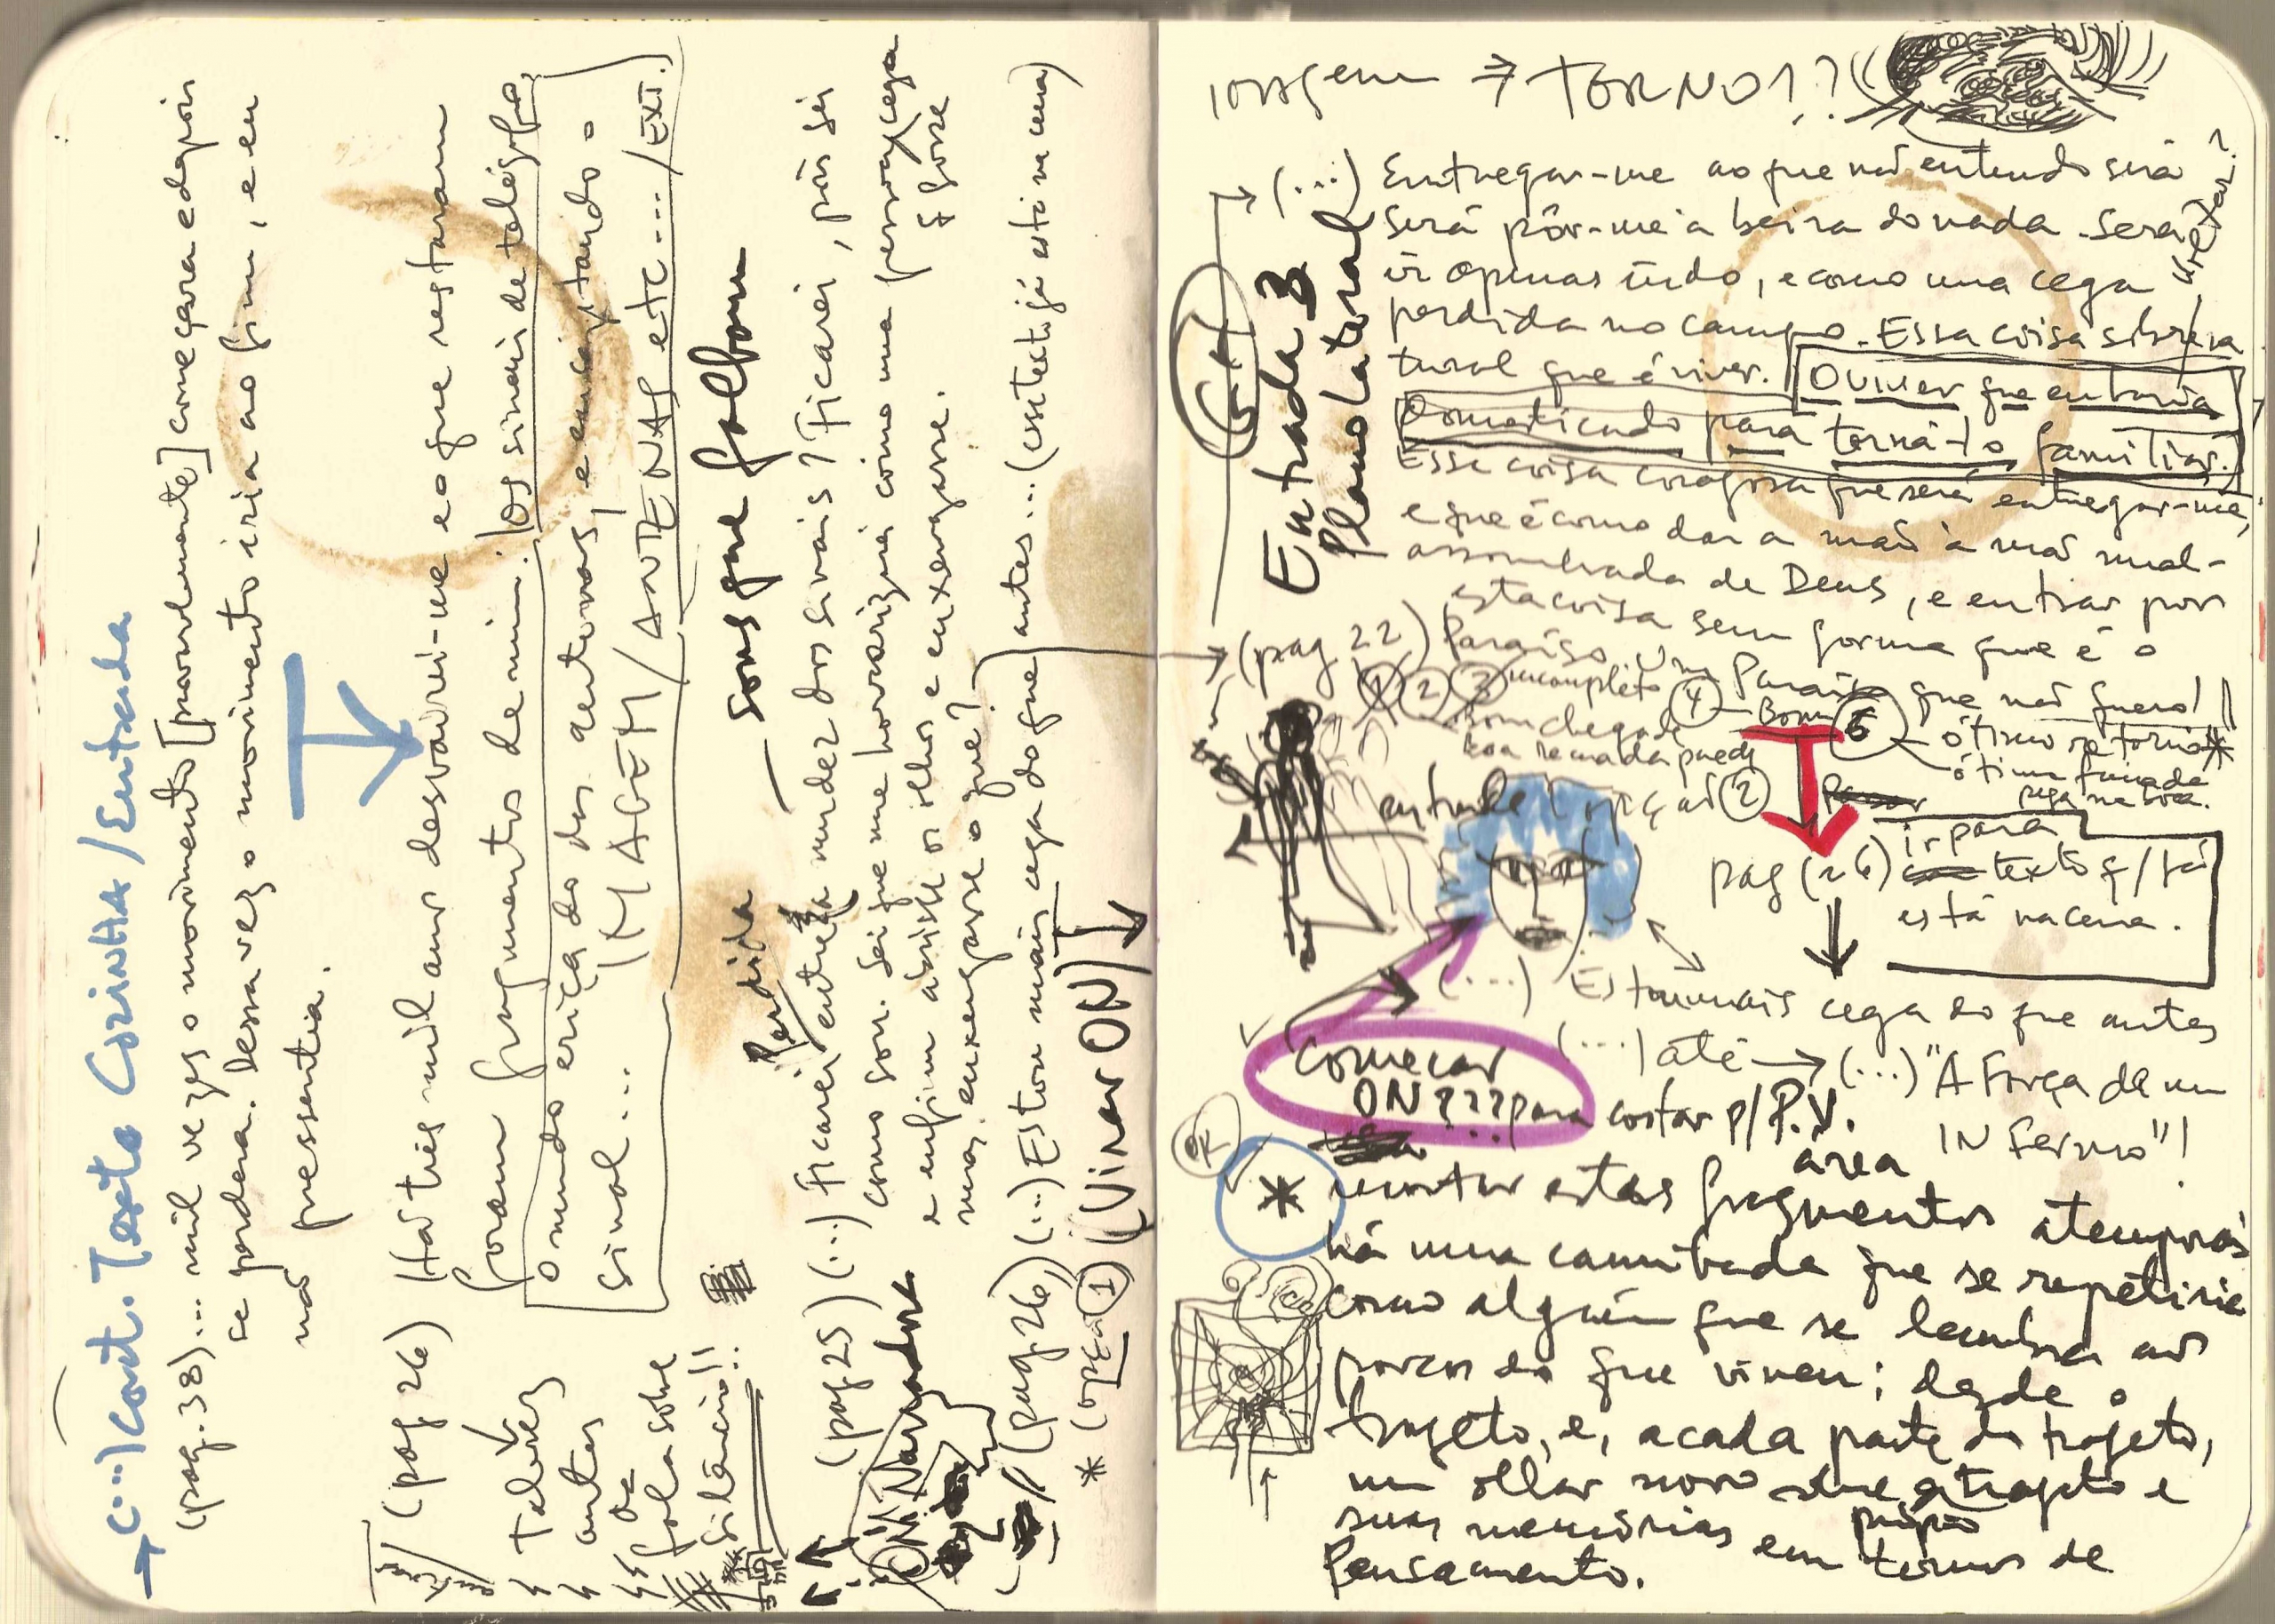 → (...) Cont. Texto Cozinha / Entrada
(pag. 38)... mil vezes o movimento [provavelmente] começara e depois
se perdera. Dessa vez o movimento iria ao fim, e eu
não pressentia.
(pag 26) Há três mil anos desvairei-me e o que restaram
foram fragmentos de mim. Os sinais de telégrafo.
O mundo eriçado de antenas, e eu captando o
sinal...
IMAGEM / ANTENAS etc... / EXT.
talvez
antes
de
fala sobre
silêncio!!
— sons que faltam
Perdida
(pag. 25) (...) Ficarei entre a mudez dos sinais? Ficarei, pois sei
como sou. Sei que me horrorizaria como uma pessoa cega
que enfim abrisse os olhos e enxergasse.
mas enxergasse o que?
ON Narradora
(pag. 26) (...) Estou mais cega do que antes... (este texto já está na cena)
* (opção 1) (Virar ON) ↓
imagem → TORNO!??
Entrada 3
Plano lateral
→ (...) Entregar-me ao que não entendo será
será pôr-me à beira do nada. Será
ir apenas indo, e como uma cega
perdida no campo. Essa coisa sobrena
tural que é viver. O viver que eu havia
domesticado para torná-lo familiar.
Essa coisa corajosa que será entregar-me,
e que é como dar a mão à mão mal-
assombrada de Deus, e entrar por
esta coisa sem forma que é o
(pag 22) Paraíso. Um Paraíso que não quero!
1 2 3 incompleto
4 - Bom
5
ótimo se torna *
ótima
pega na boa.
entrada
opção 2
pag (26) ir para
texto q / já
está na cena.
(...) Estou mais cega do que antes
(...) até → (...) "A Força de um
INferno"!
começar
ON??? para cortar p/ P.V.
área
OK
* montar estes fragmentos atemporais
há uma caminhada que se repetiria
como alguém que se lembra aos
poucos do que viveu; desde o
trajeto, e, a cada parte do trajeto,
um olhar novo sobre o trajeto e
suas memórias em próprio
termos de
Pensamento.